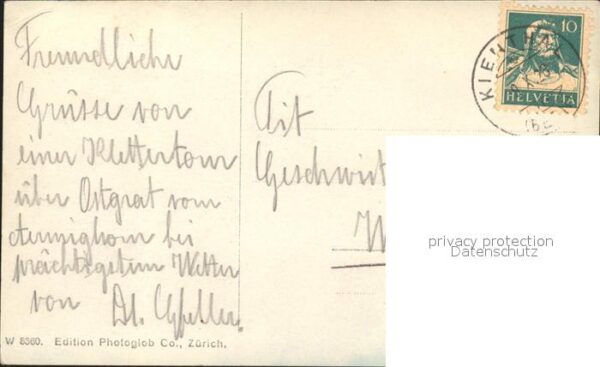 Freundliche
Grüsse von
einer Klettertour
über Ostgrat vom
Aermighorn bei
prächtigstem Wetter
von
W 8360. Edition Photoglob Co., Zürich.
10
HELVETIA
KIENTHAL
Tit
Geschwist
W
privacy protection
Datenschutz